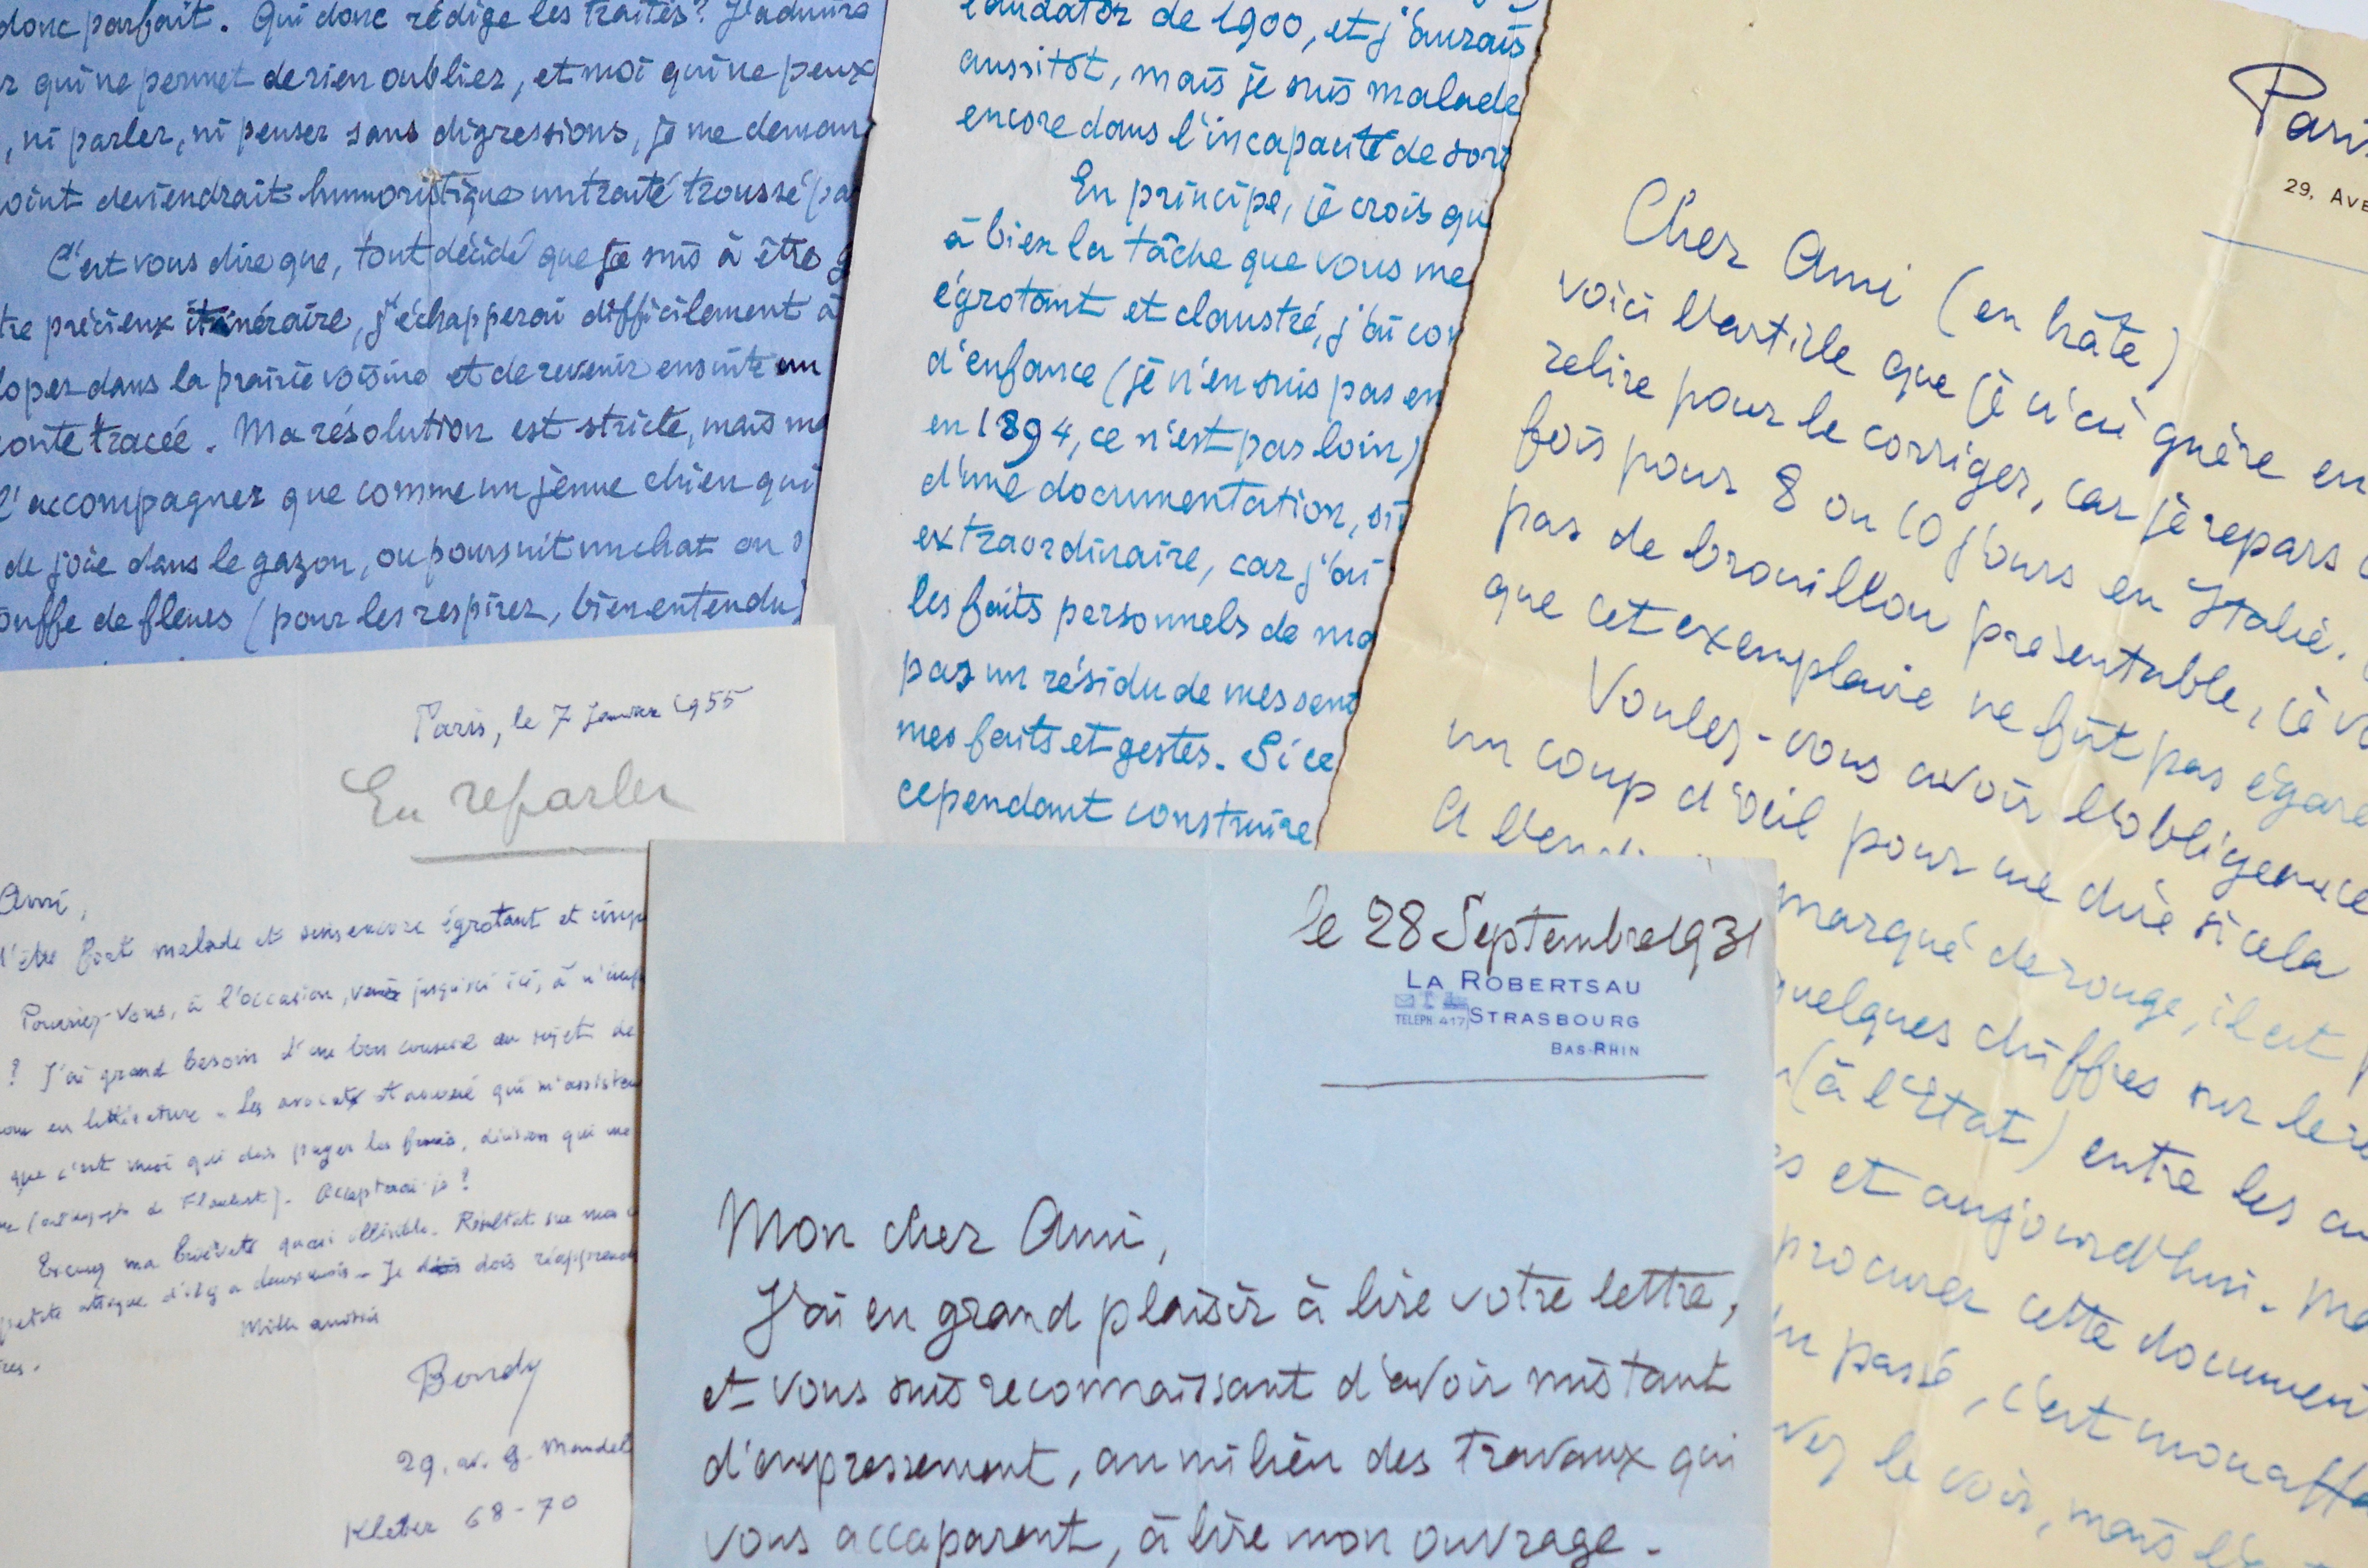 donc parfait. Qui donc rédige les traités? J'admire
qui ne permet de rien oublier, et moi qui ne peux
, ni parler, ni penser sans digressions, je me deman
oint deviendrait humoristique un traité troussé pa
C'est vous dire que, tout décidé que je suis à être g
tre précieux itinéraire, j'échapperai difficilement à
loper dans la prairie voisine et de revenir ensuite au
oute tracée. Ma résolution est stricte, mais me
l'accompagner que comme un jeune chien qui
de joie dans le gazon, ou poursuit un chat ou
ouffe de fleurs (pour les respirer, bien entendu)
laudator de 1900, et j'aurais
aussitôt, mais je suis malade
encore dans l'incapacité de sort
En principe, je crois qu
à bien la tâche que vous me
égrotant et claustré, j'ai con
d'enfance (je n'en suis pas en
en 1894, ce n'est pas loin)
d'une documentation, si
extraordinaire, car j'ai
les faits personnels de ma
pas un résidu de mes sent
mes faits et gestes. Si ce
cependant construire
Paris
29, AVE
Cher Ami (en hâte)
voici l'article que je n'ai guère eu
relire pour le corriger, car je repars
fois pour 8 ou 10 jours en Italie.
pas de brouillon présentable, je vo
que cet exemplaire ne fût pas égaré
Voulez-vous avoir l'obligeance
un coup d'oeil pour me dire si cela
A l'en
marqué de rouge, il est
quelques chiffres sur le re
(à l'Etat) entre les an
es et aujourd'hui. Ma
procurer cette document
du passé, c'est mon affa
vez le voir, mais l'
Paris, le 7 Janvier 1955
En reparler
Ami,
d'être fort malade et suis encore égrotant et
Pourriez-vous, à l'occasion, venir jusqu'ici, à n'imp
? J'ai grand besoin d'un bon conseil au sujet de
en littérature. Les avocats et avoué qui m'assisten
que c'est moi qui dois payer les frais, division qui me
de Flaubert). Accepterai-je?
Excusez ma brièveté quasi illisible. Résultat sur ma
petite attaque d'il y a deux mois. Je dois réapprend
Mille amitiés
res.
Bourdy
29. av. G. Mandel
Kléber 68-70
le 28 Septembre 1931
LA ROBERTSAU
TELEPH. 417 STRASBOURG
BAS-RHIN
Mon cher Ami,
J'ai eu grand plaisir à lire votre lettre,
et vous suis reconnaissant d'avoir mis tant
d'empressement, au milieu des travaux qui
vous accaparent, à lire mon ouvrage.